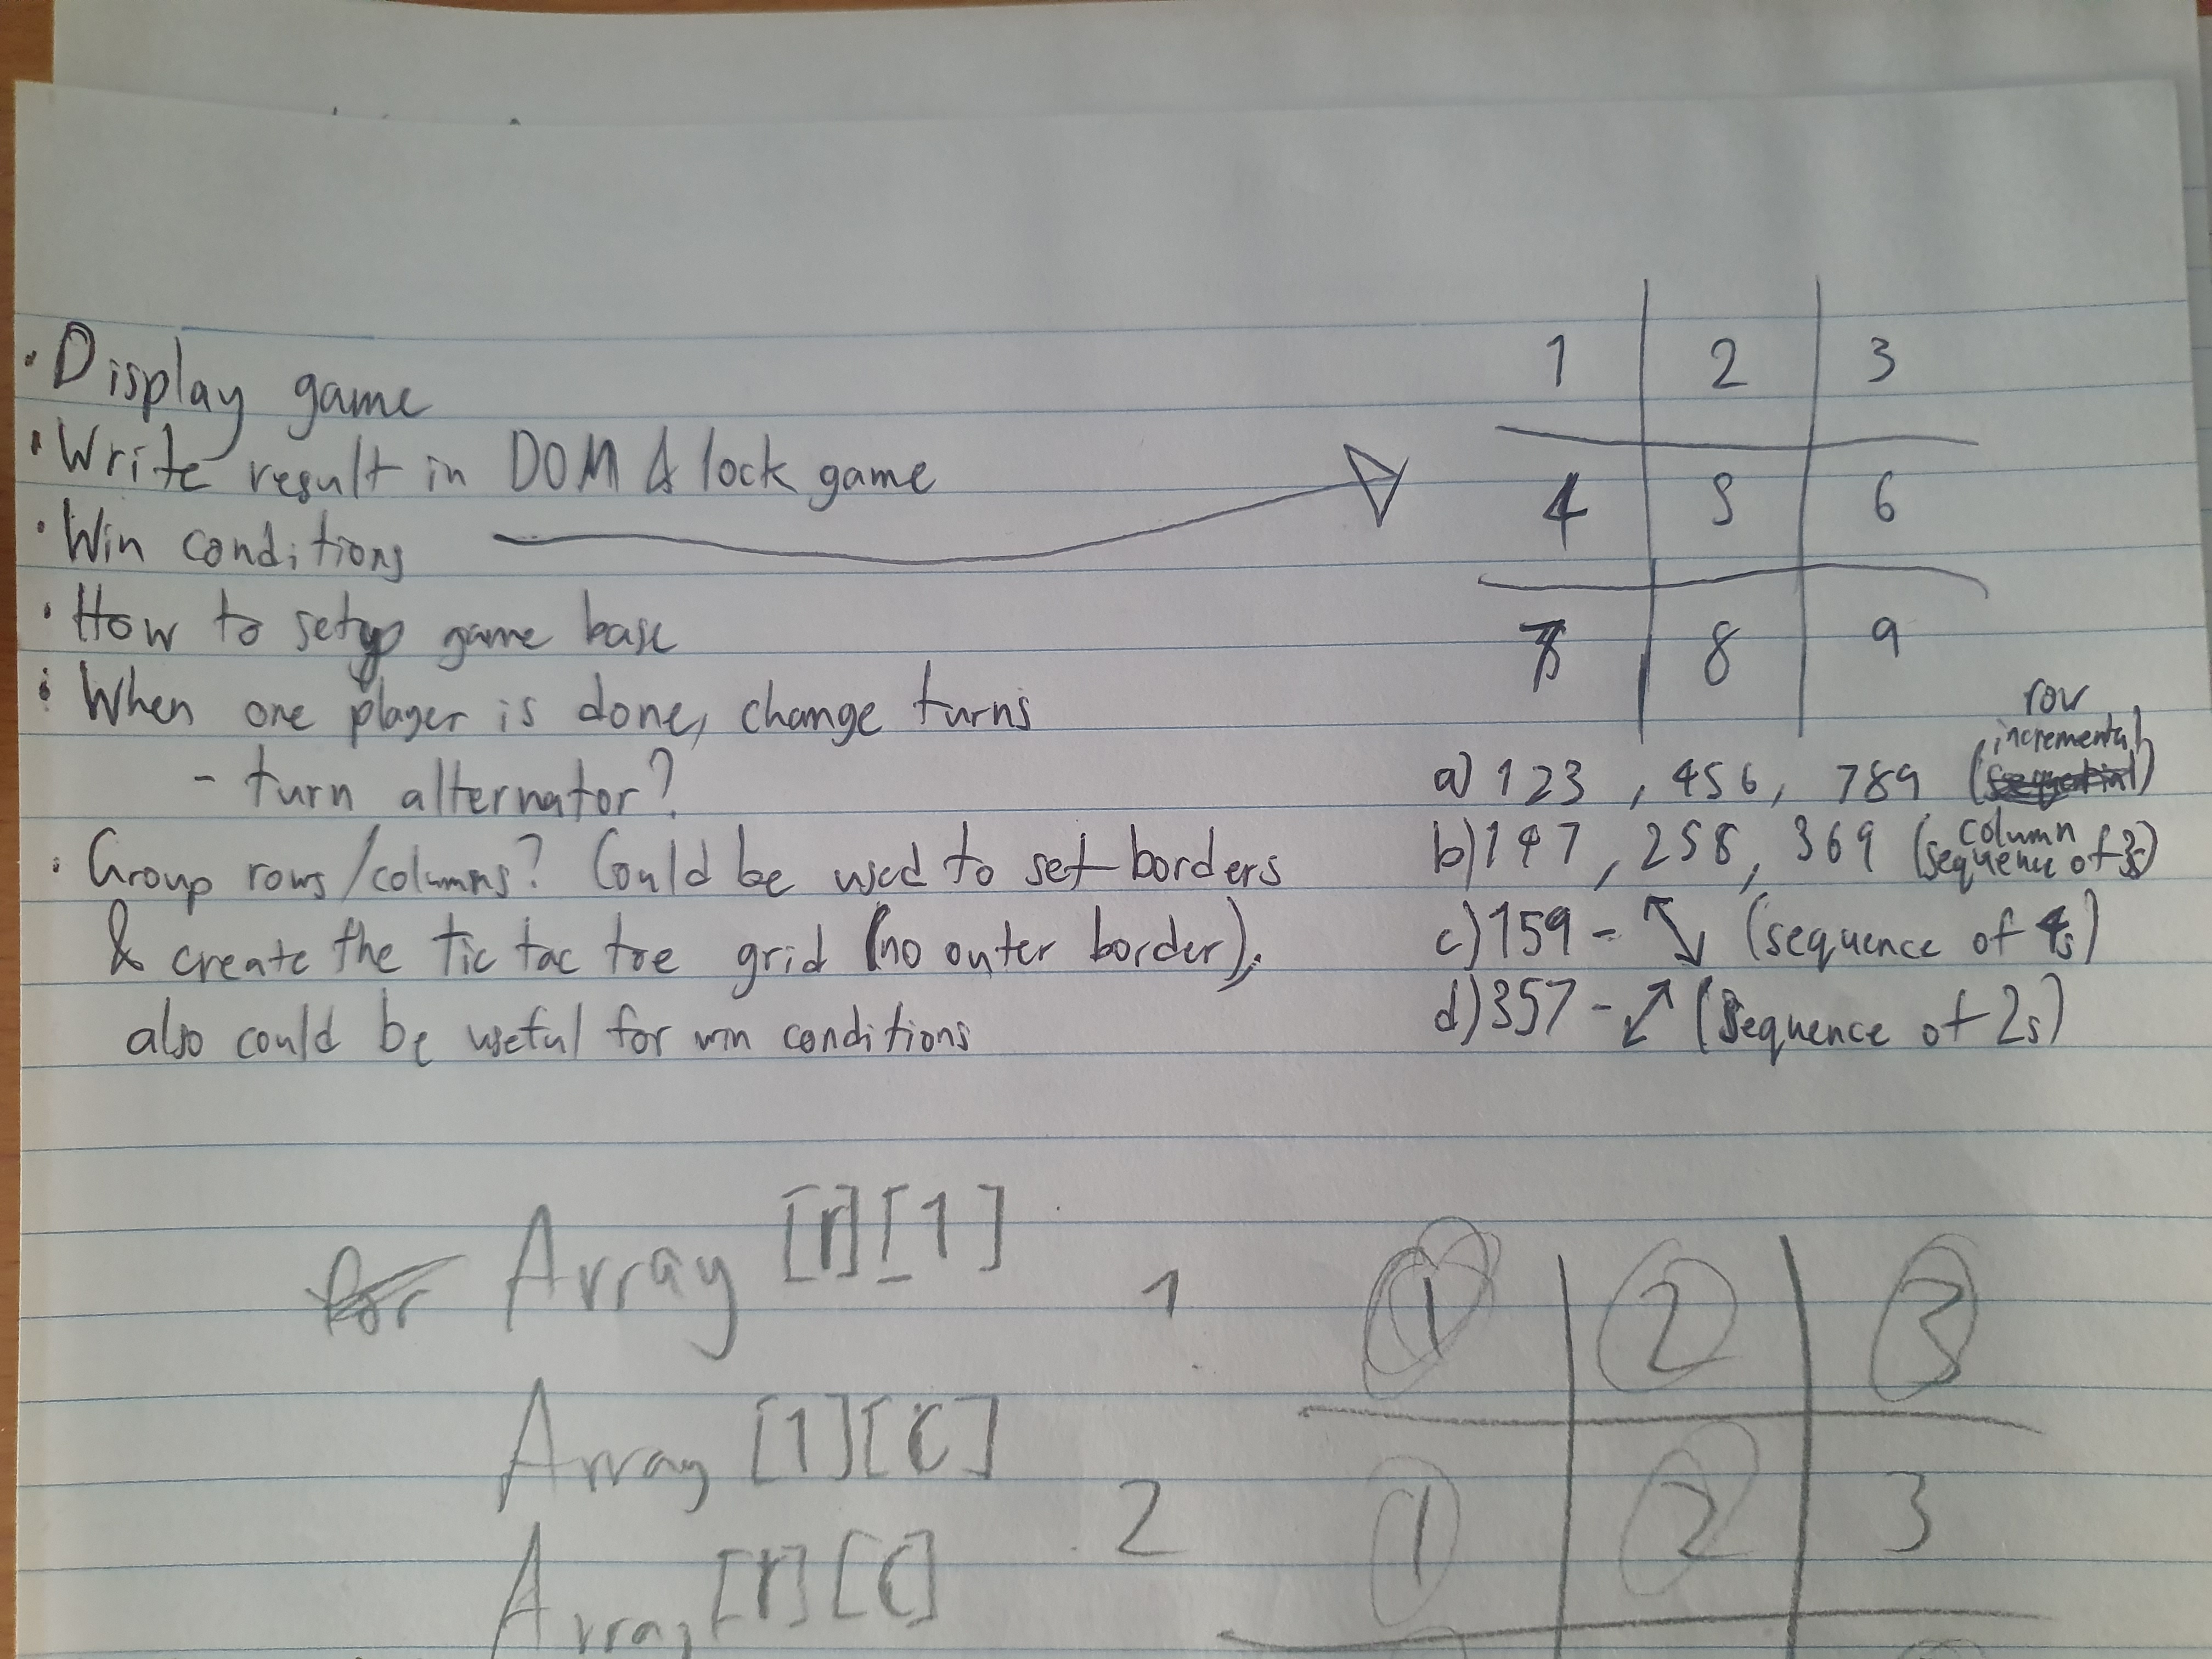 · Display game
· Write result in DOM & lock game
· Win conditions
· How to setup game base
· When one player is done, change turns
- turn alternator?
· Group rows/columns? Could be used to set borders
& create the tic tac toe grid (no outer border),
also could be useful for win conditions
1 2 3
4 5 6
7 8 9
row
a) 123, 456, 789 (incremental)
b) 147, 258, 369 (column sequence of 3s)
c) 159 - ↖↘ (sequence of 4s)
d) 357 - ↗↙ (sequence of 2s)
for Array [r][1]
Array [1][c]
Array [r][c]
1 1 2 3
2 1 2 3